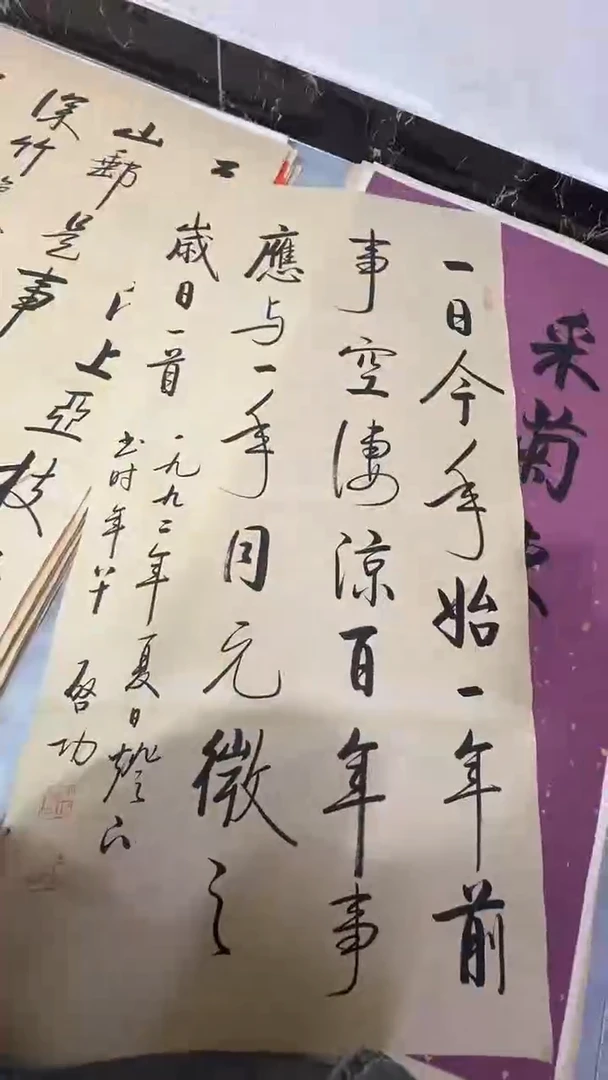 采菊
一日今年始一年前
事空凄涼百年事
應与一年同元微之
歲日一首 一九九二年夏日燈下
书时年八十 啓功
二
山
上亞枝
是事
深竹